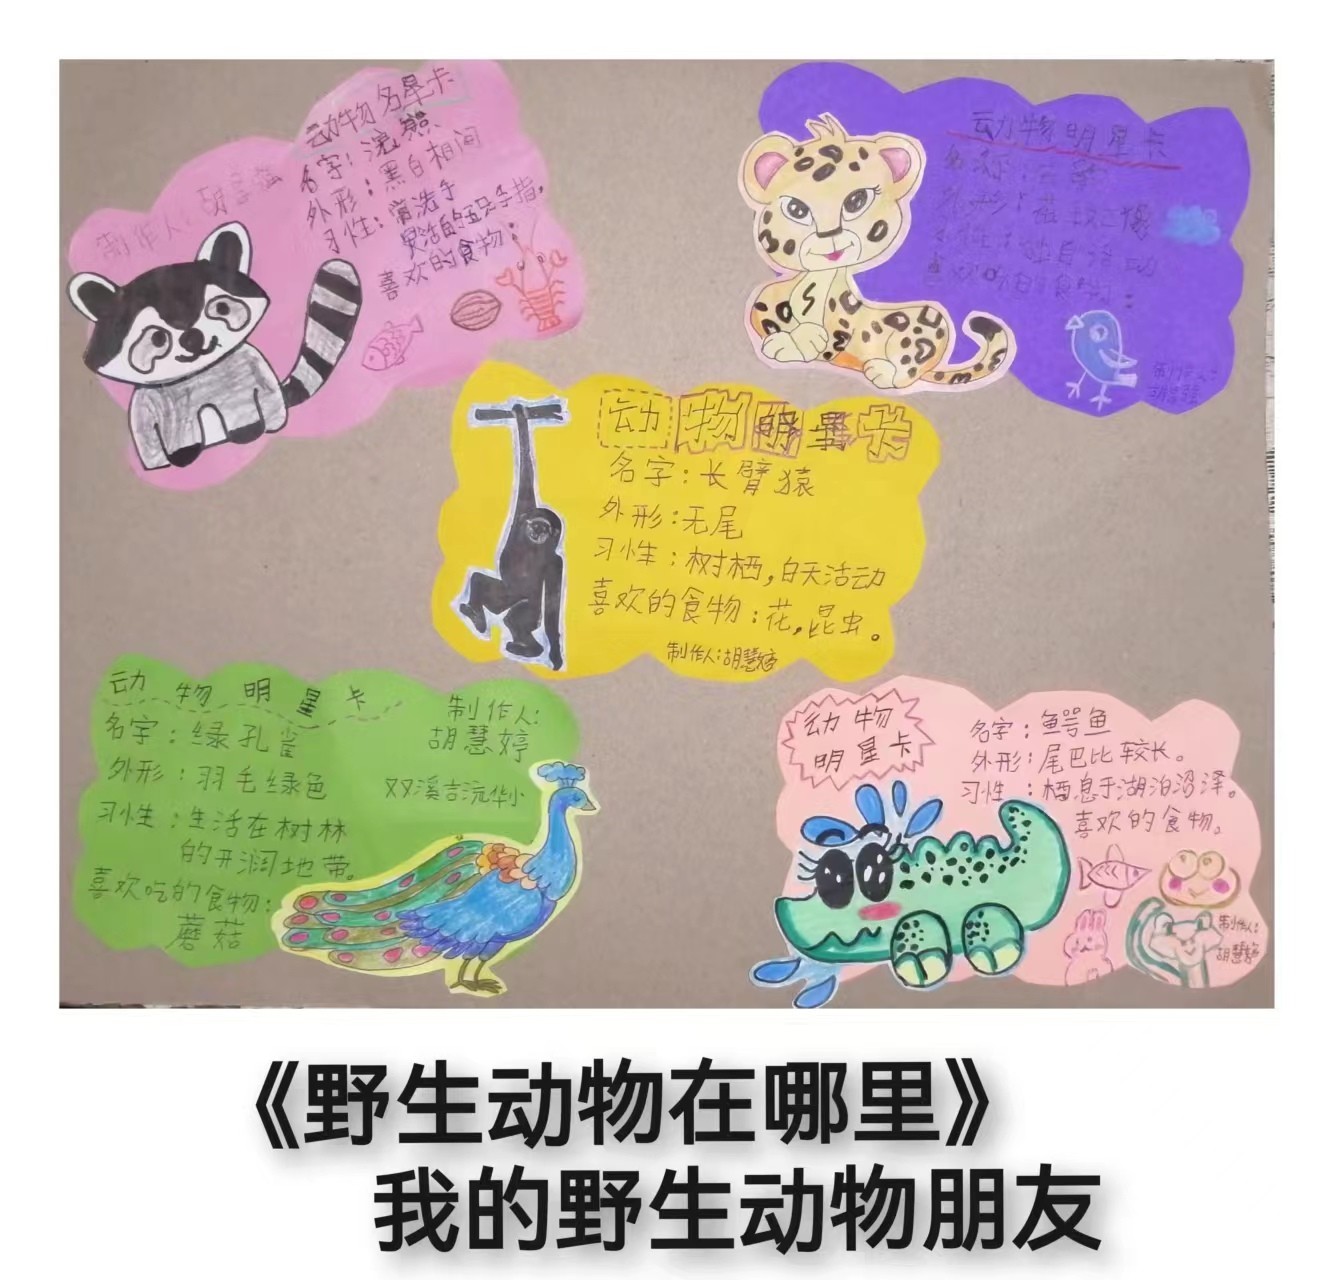 动物名星卡
名字：浣熊
外形：黑白相间
习性：常洗手
灵活的五只手指。
喜欢的食物：
制作人：胡慧婷
动物明星卡
名称：云豹
外形：花纹像
习性：独自活动
喜欢吃的食物：
制作人：
胡慧婷
动物明星卡
名字：长臂猿
外形：无尾
习性：树栖，白天活动
喜欢的食物：花，昆虫。
制作人：胡慧婷
动物明星卡
名字：绿孔雀
外形：羽毛绿色
习性：生活在树林
的开阔地带。
喜欢吃的食物：
蘑菇
制作人：
胡慧婷
双溪吉沅华小
动物
明星卡
名字：鳄鱼
外形：尾巴比较长。
习性：栖息于湖泊沼泽。
喜欢的食物。
制作人：
胡慧婷
《野生动物在哪里》
我的野生动物朋友